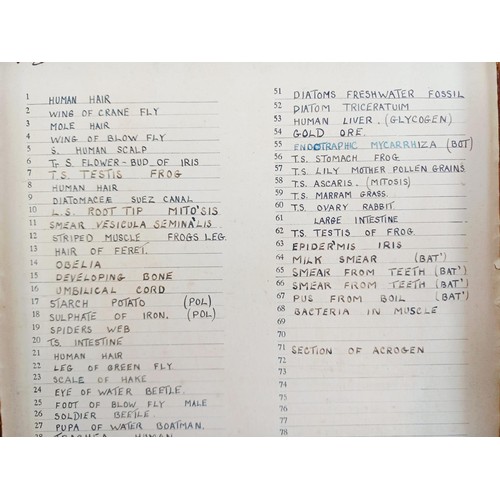 1 HUMAN HAIR
2 WING OF CRANE FLY
3 MOLE HAIR
4 WING OF BLOW FLY
5 S. HUMAN SCALP
6 T. S FLOWER-BUD OF IRIS
7 T.S. TESTIS FROG
8 HUMAN HAIR
9 DIATOMACEÆ SUEZ CANAL
10 L.S. ROOT TIP MITO'SIS
11 SMEAR VESICULA SEMINALIS
12 STRIPED MUSCLE FROGS LEG
13 HAIR OF FERET.
14 OBELIA
15 DEVELOPING BONE
16 UMBILICAL CORD
17 STARCH POTATO (POL)
18 SULPHATE OF IRON. (POL)
19 SPIDERS WEB
20 T.S. INTESTINE
21 HUMAN HAIR
22 LEG OF GREEN FLY
23 SCALE OF HAKE
24 EYE OF WATER BEETLE.
25 FOOT OF BLOW FLY MALE
26 SOLDIER BEETLE.
27 PUPA OF WATER BOATMAN.
28 TRACHEA HUMAN
51 DIATOMS FRESHWATER FOSSIL
52 DIATOM TRICERATIUM
53 HUMAN LIVER. (GLYCOGEN)
54 GOLD ORE.
55 ENDOTRAPHIC MYCARRHIZA (BOT)
56 T.S. STOMACH FROG
57 T.S. LILY MOTHER POLLEN GRAINS
58 T.S. ASCARIS. (MITOSIS)
59 T.S. MARRAM GRASS.
60 T.S. OVARY RABBIT
61 LARGE INTESTINE
62 T.S. TESTIS OF FROG
63 EPIDERMIS IRIS
64 MILK SMEAR (BAT')
65 SMEAR FROM TEETH (BAT')
66 SMEAR FROM TEETH (BAT')
67 PUS FROM BOIL (BAT')
68 BACTERIA IN MUSCLE
69
70
71 SECTION OF ACROGEN
72
73
74
75
76
77
78